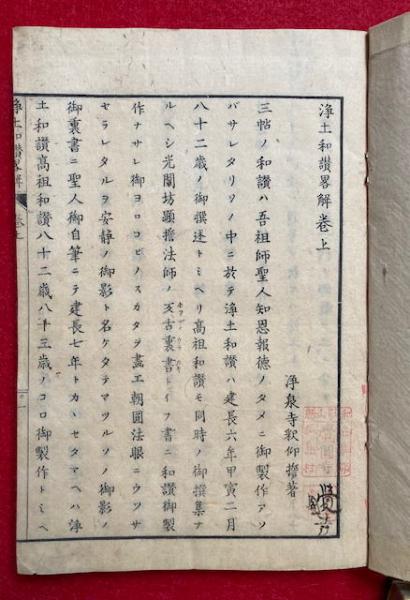 浄土和讃畧解卷上
浄泉寺釈仰擔著
三帖ノ和讃ハ吾祖師聖人知恩報徳ノタメニ御製作アソ
バサレタリソノ中ニ於テ浄土和讃ハ建長六年甲寅二月
八十二歳ノ御撰述トミヘリ高祖和讃モ同時ノ御撰集ナ
ルヘシ光闡坊顕擔法師ノ反古裏書トイフ書ニ和讃御製
作ナサレ御ヨロコビノスカタヲ畫工朝圓法眼ニウツサ
セラレタルヲ安静ノ御影ト名ケタテマツルソノ御影ノ
御裏書ニ聖人御自筆ニテ建長七年トカヽセタマヘハ浄
土和讃高祖和讃八十二歳八十三歳ノコロ御製作トミヘ
浄土和讃畧解